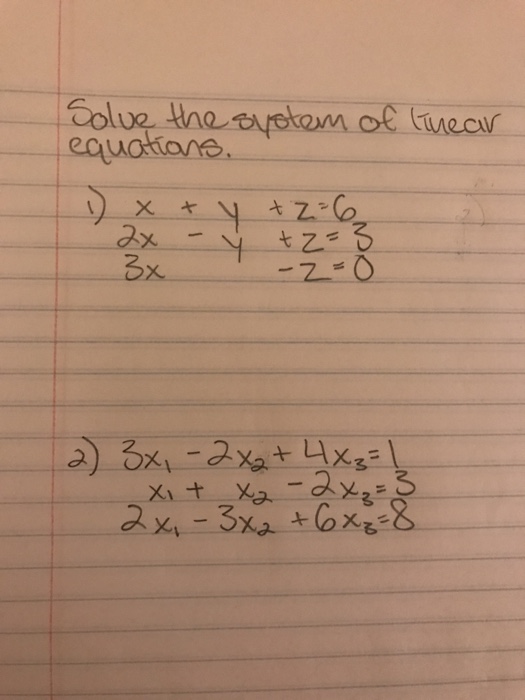 Solve the system of linear
equations.
1) x + y + z = 6
2x - y + z = 3
3x - z = 0
2) 3x₁ - 2x₂ + 4x₃ = 1
x₁ + x₂ - 2x₃ = 3
2x₁ - 3x₂ + 6x₃ = 8